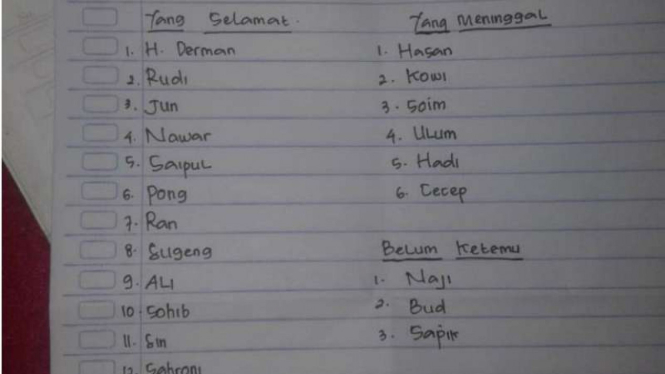 Yang Selamat.
1. H. Derman
2. Rudi
3. Jun
4. Nawar
5. Saipul
6. Pong
7. Ran
8. Sugeng
9. ALI
10. Sohib
11. Sin
12. Sahroni
Yang Meninggal
1. Hasan
2. Kowi
3. Soim
4. Ulum
5. Hadi
6. Cecep
Belum Ketemu
1. Naji
2. Bud
3. Sapik